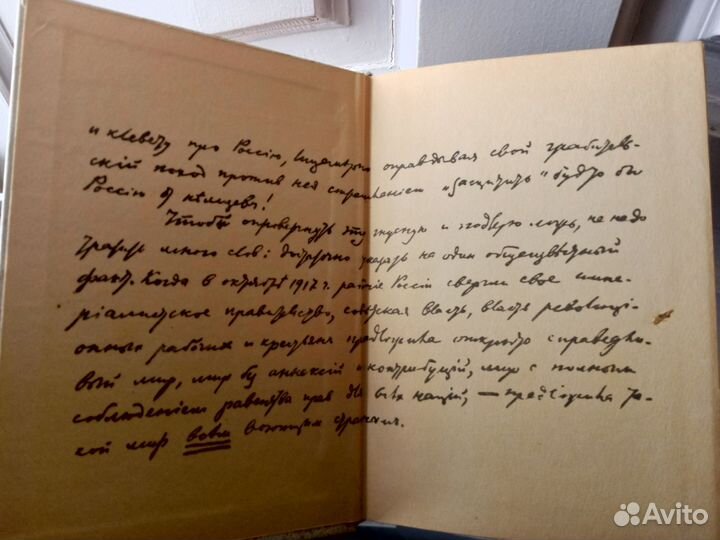 и клевету про Россію, лицемѣрно оправдывая свой грабитель-
скій поход против нея стремленіем "защитить" будто бы
Россію от нѣмцев!
Чтобы опровергнуть эту гнусную и подлую ложь, не надо
тратить много слов: достаточно указать на один общеизвѣстный
факт. Когда в октябрѣ 1917 г. рабочіе Россіи свергли свое импе-
ріалистское правительство, совѣтская власть, власть революці-
онных рабочих и крестьян предложила открыто справедли-
вый мир, мир без аннексій и контрибуцій, мир с полным
соблюденіем равенства прав для всѣх націй, — предложила та-
кой мир всѣм воюющим странам.
Avito